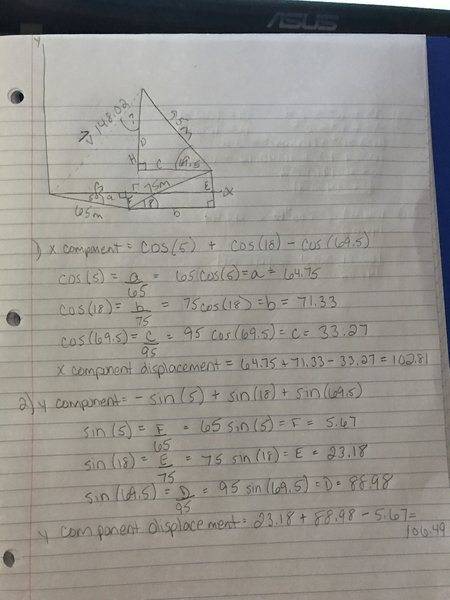 ASUS
y
148.02
95m
?
D
H
C
69.5
75m
E
x
5
a
F
65m
18
b
1) x component = cos(5) + cos(18) - cos(69.5)
cos(5) = a/65 = 65cos(5) = a = 64.75
cos(18) = b/75 = 75cos(18) = b = 71.33
cos(69.5) = c/95 = 95 cos(69.5) = c = 33.27
x component displacement = 64.75 + 71.33 - 33.27 = 102.81
2) y component = - sin(5) + sin(18) + sin(69.5)
sin(5) = F/65 = 65 sin(5) = F = 5.67
sin(18) = E/75 = 75 sin(18) = E = 23.18
sin(69.5) = D/95 = 95 sin(69.5) = D = 88.98
y component displacement = 23.18 + 88.98 - 5.67 =
106.49